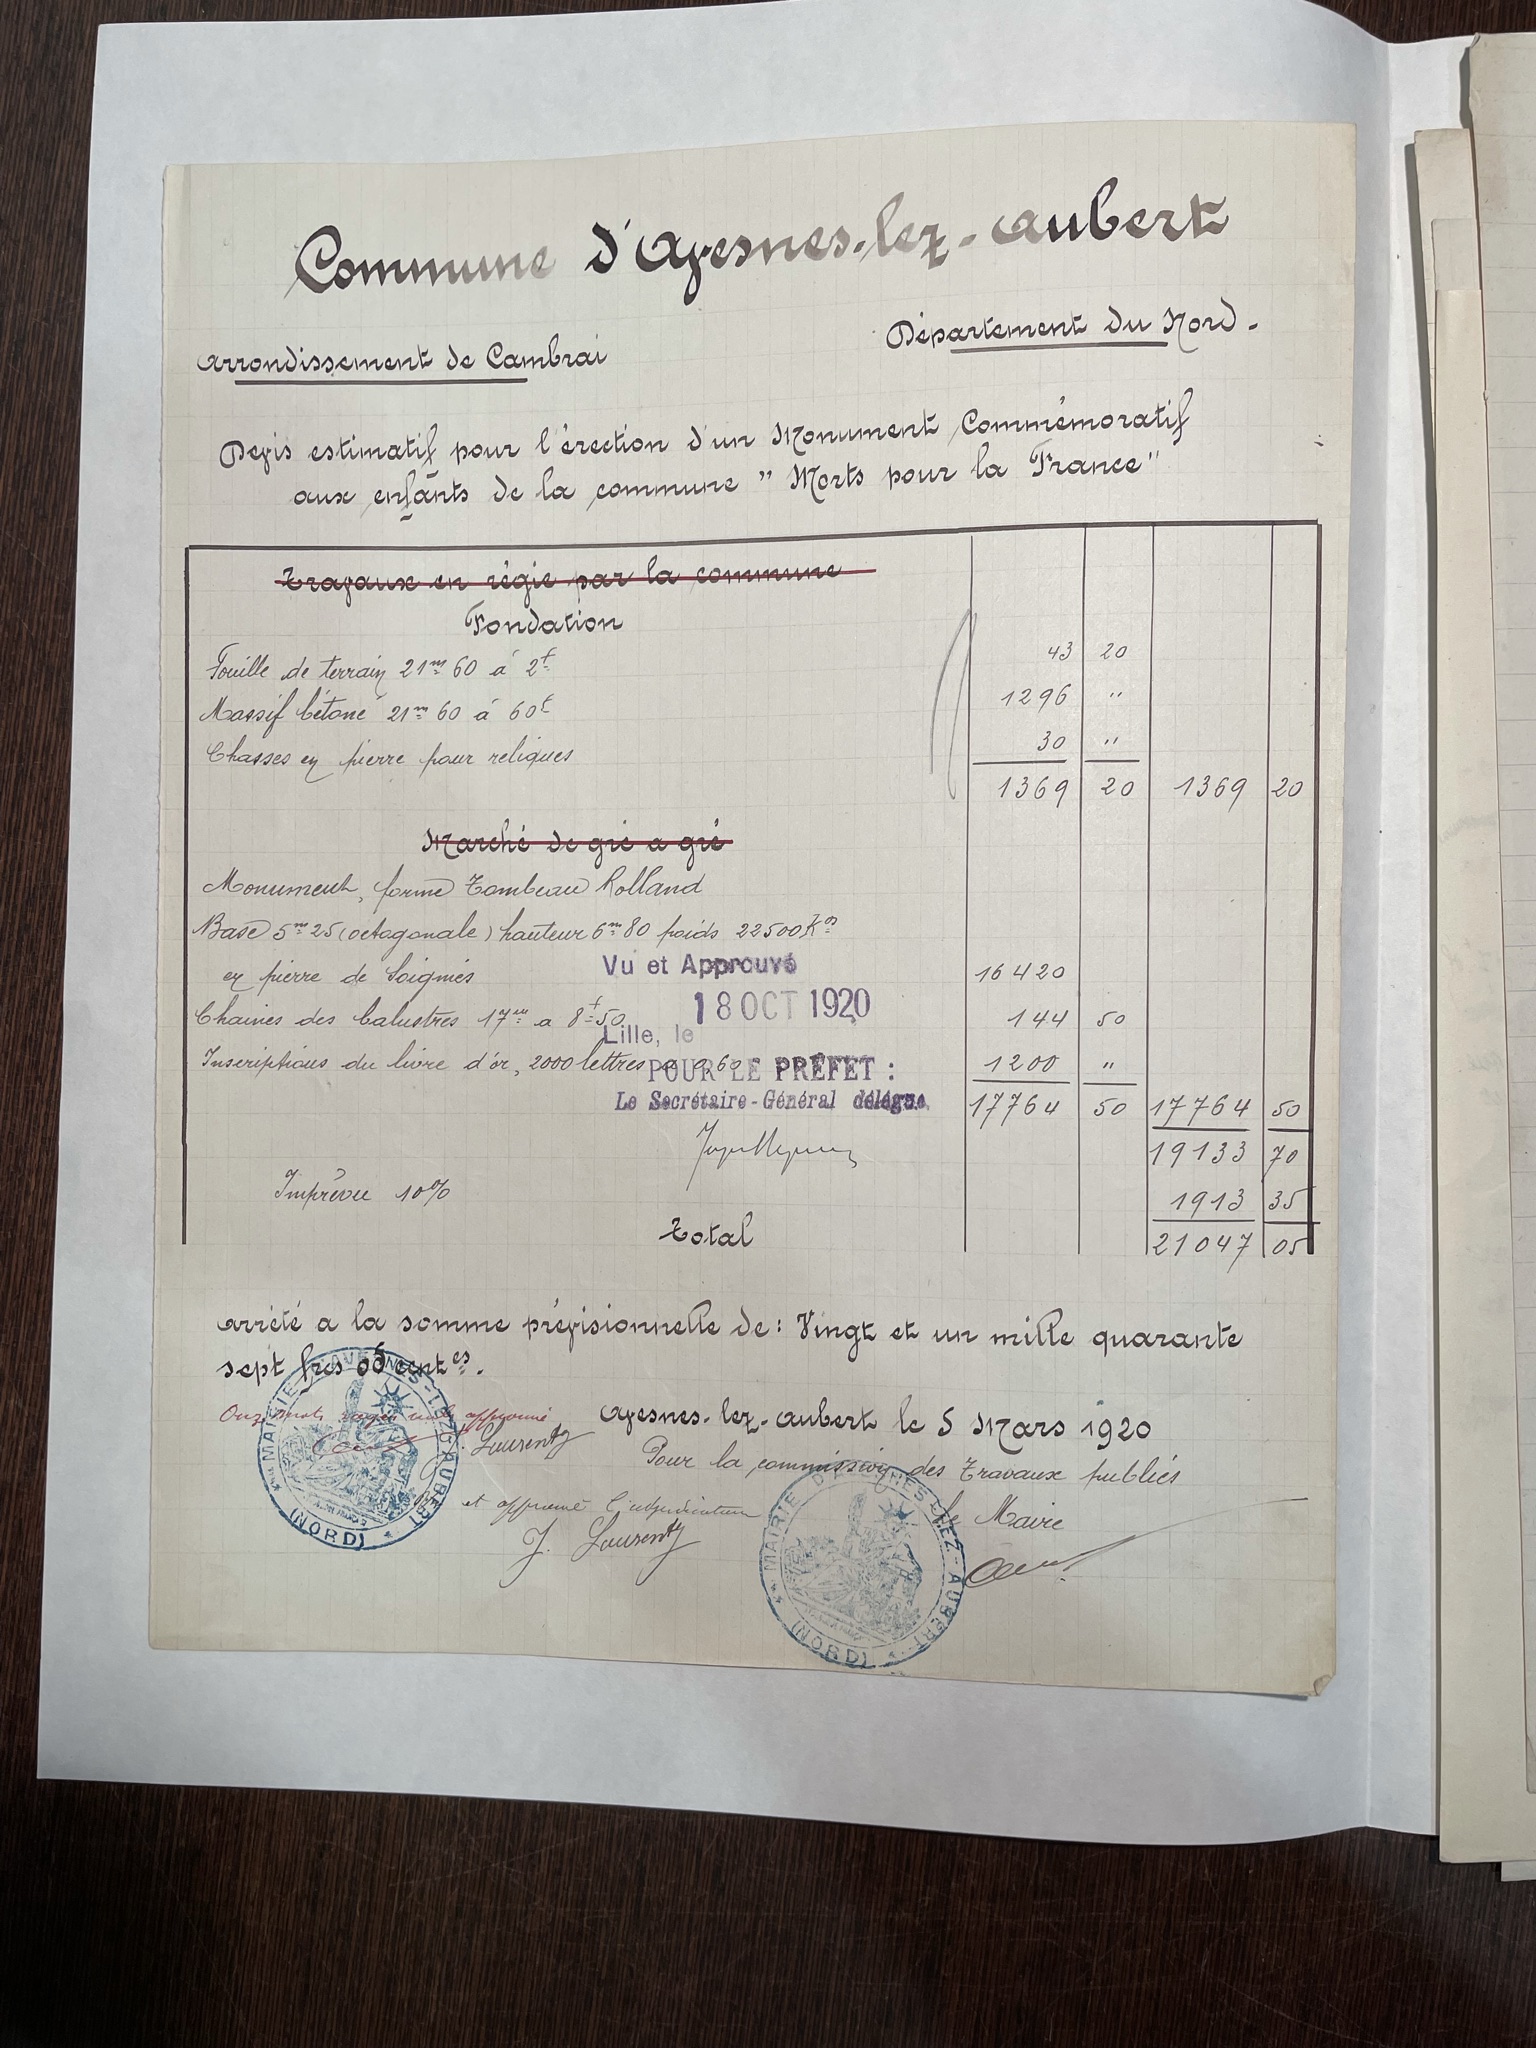 Commune d'Avesnes-lez-Aubert
Arrondissement de Cambrai
Département du Nord.
Devis estimatif pour l'érection d'un Monument Commémoratif
aux enfants de la commune " Morts pour la France"
Travaux en régie par la commune
Fondation
Fouille de terrain 21m 60 à 2f 43 20
Massif bétoné 21m 60 à 60f 1296 "
Chasses en pierre pour reliques 30 "
1369 20 1369 20
Marché de gré a gré
Monument, forme Tombeau Rolland
Base 5m 25 (octogonale) hauteur 6m 80 poids 22500 Kos
en pierre de Soignies 16420
Chaines des balustres 17m a 8f 50 144 50
Inscriptions du livre d'or, 2000 lettres a 0 60 1200 "
17764 50 17764 50
19133 70
Imprévu 10% 1913 35
Total 21047 05
Vu et Approuvé
18 OCT 1920
Lille, le
POUR LE PRÉFET :
Le Secrétaire-Général délégué,
arrêté a la somme prévisionnelle de : Vingt et un mille quarante
sept frcs 05 centes.
Onze mots rayés nuls approuvé
J. Laurent
Avesnes-lez-Aubert le 5 Mars 1920
Pour la commission des Travaux publics
et approuvé l'adjudicataire
J. Laurent
Le Maire
MAIRIE D'AVESNES-LEZ-AUBERT
(NORD)
MAIRIE D'AVESNES-LEZ-AUBERT
(NORD)